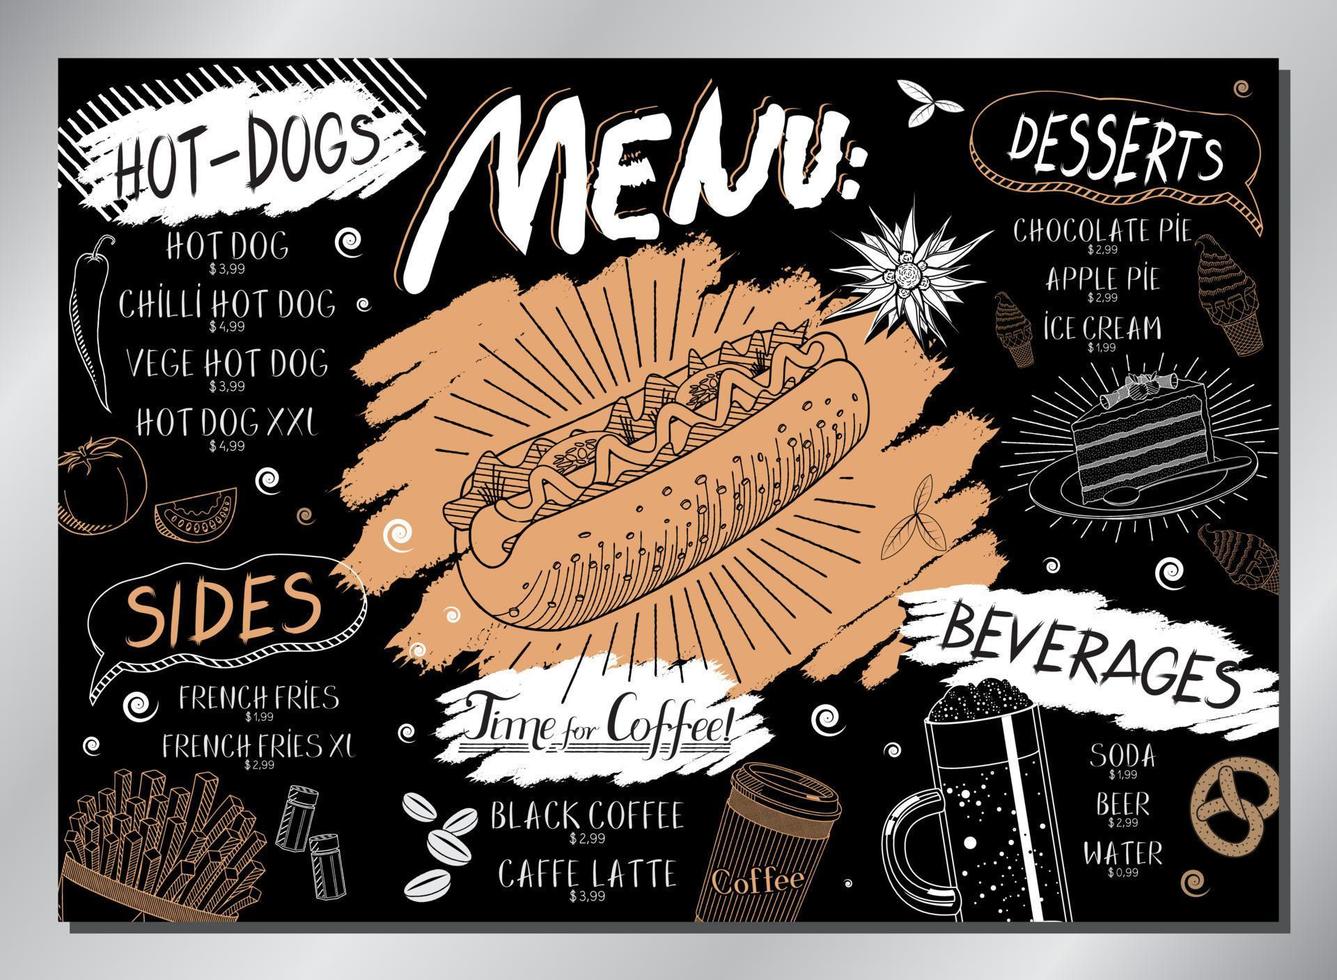 MENU:
HOT-DOGS
HOT DOG
$3,99
CHILLI HOT DOG
$4,99
VEGE HOT DOG
$3,99
HOT DOG XXL
$4,99
SIDES
FRENCH FRIES
$1,99
FRENCH FRIES XL
$2,99
Time for Coffee!
BLACK COFFEE
$2,99
CAFFE LATTE
$3,99
Coffee
DESSERTS
CHOCOLATE PIE
$2,99
APPLE PIE
$2,99
ICE CREAM
$1,99
BEVERAGES
SODA
$1,99
BEER
$2,99
WATER
$0,99